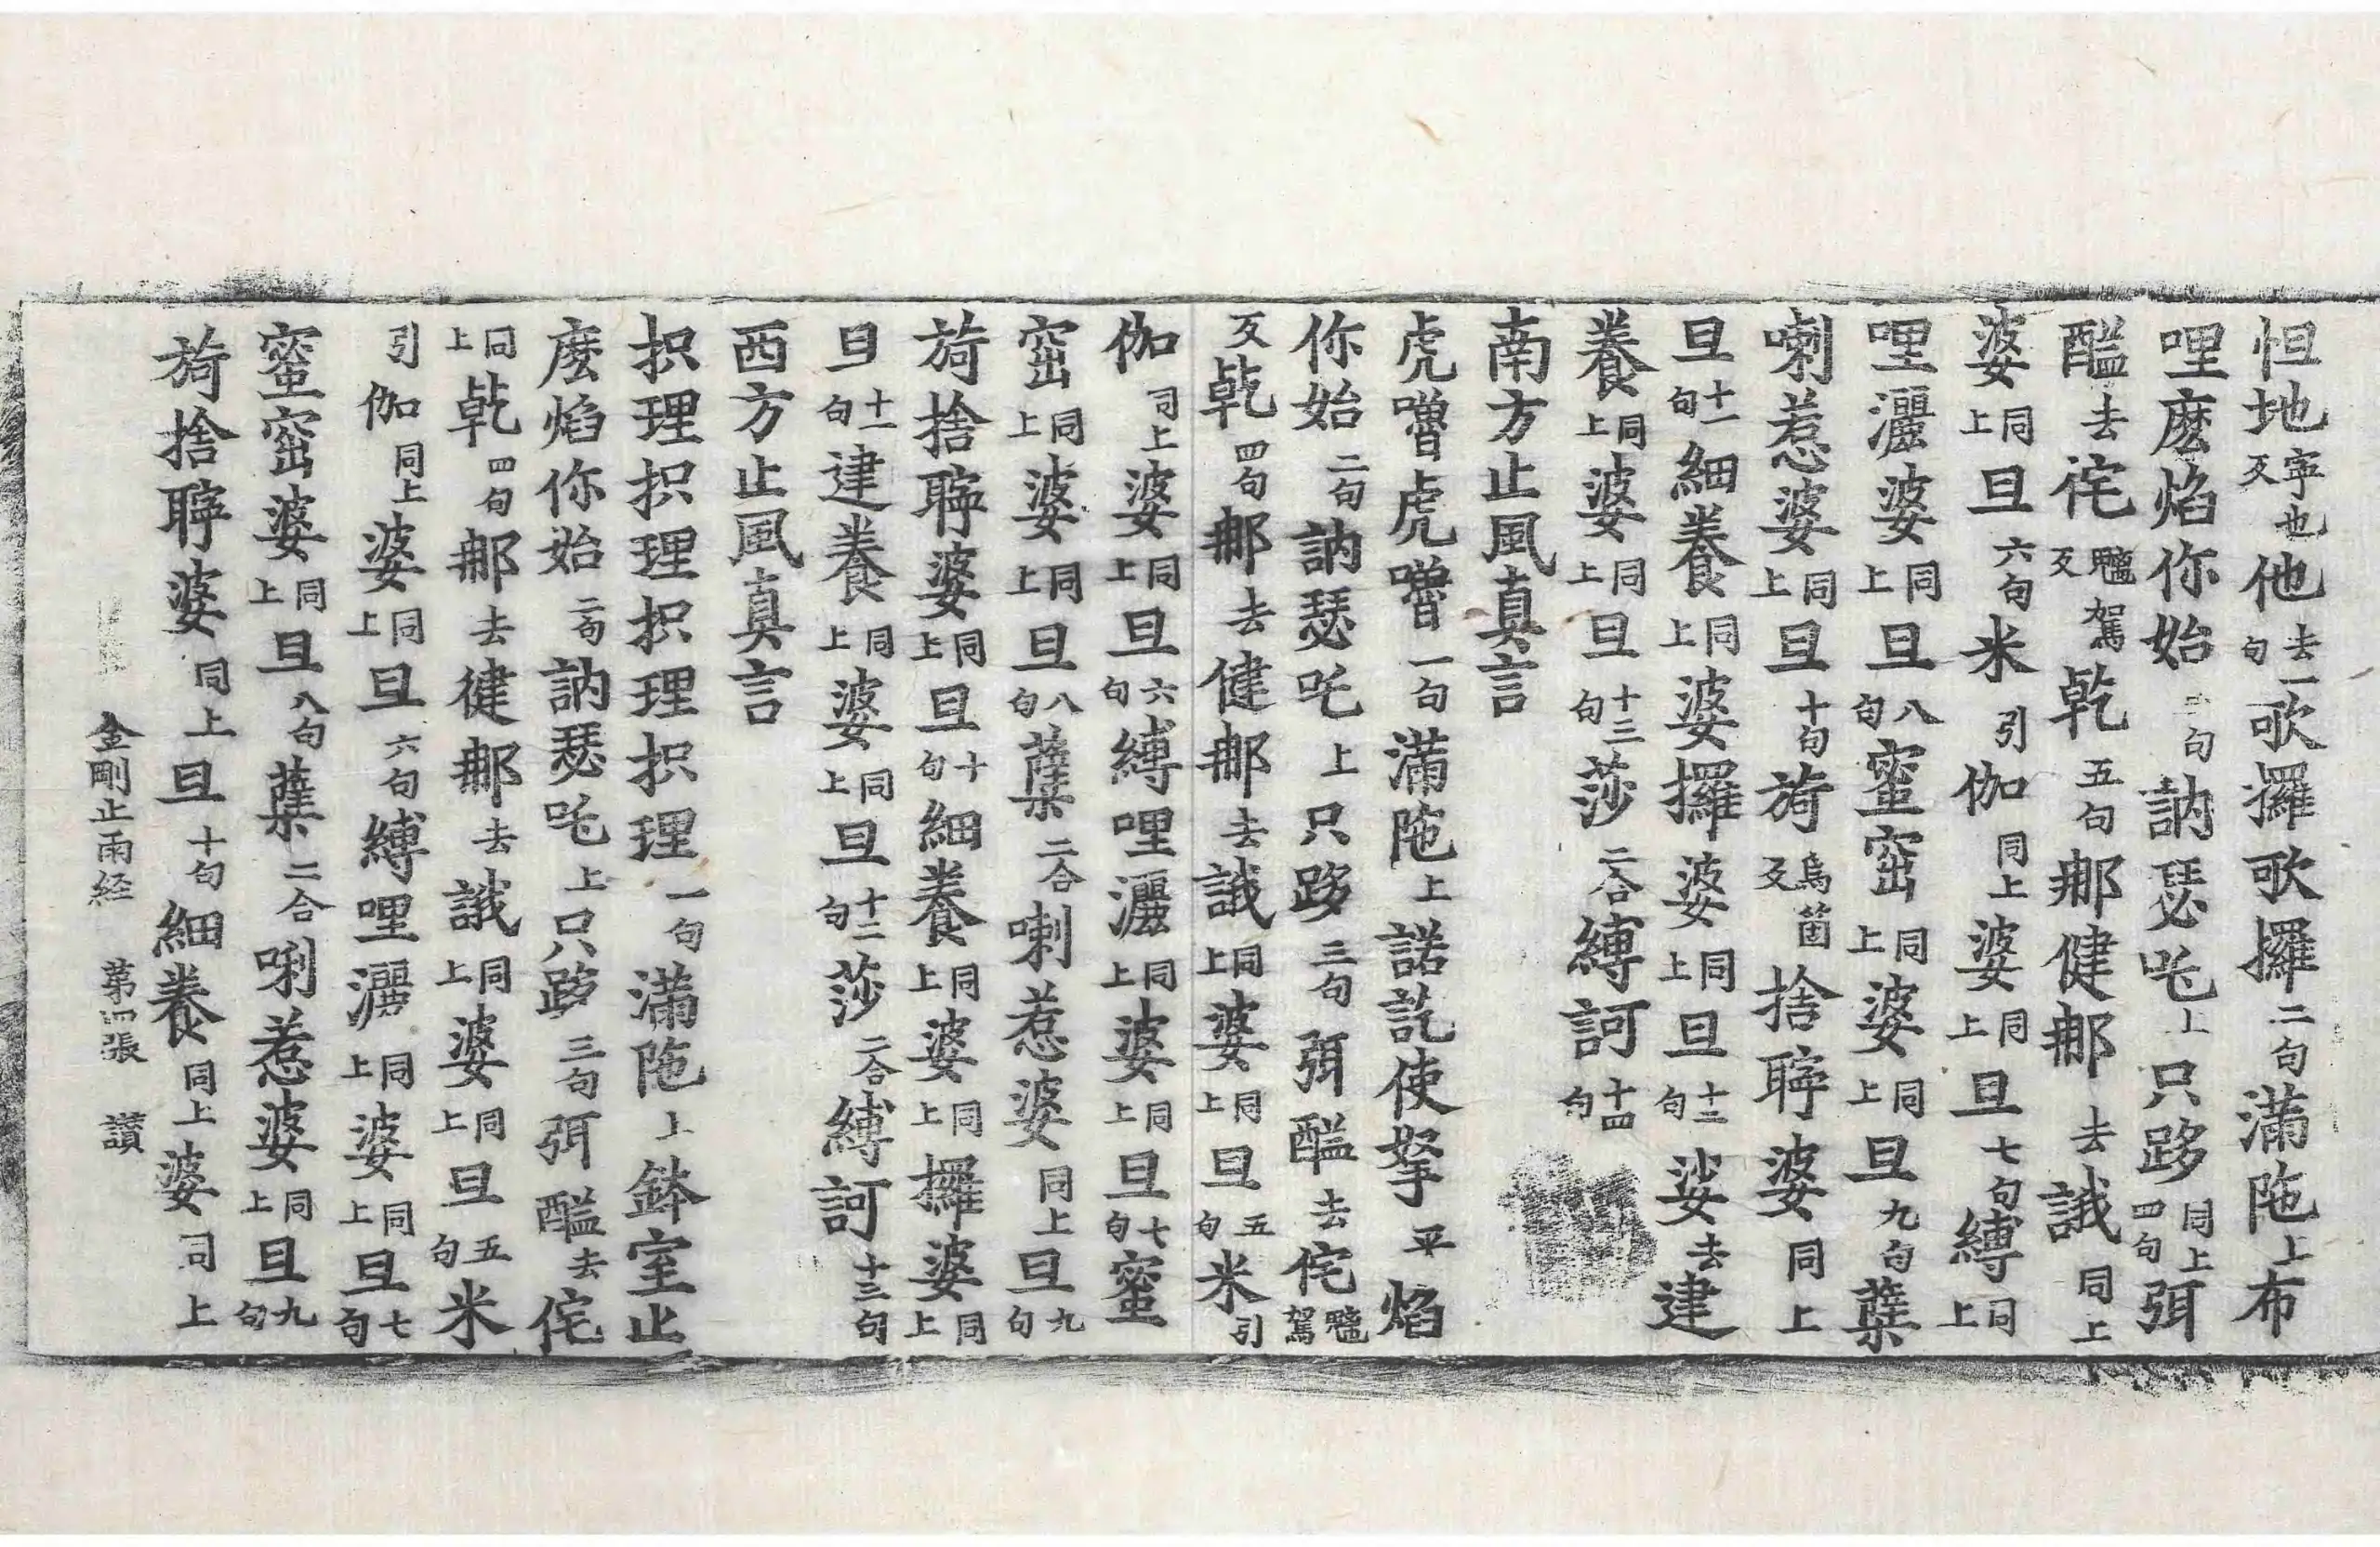 怛地寧也反他去一句歌攞歌攞二句滿陁上布
哩麽焰你始句訥瑟吒上只跢同上四句弭
䤈去侘㘓駕反乾五句那健那去誐同上
婆同上旦六句米引伽同上婆同上旦七句縛同上
哩灑婆同上旦八句蜜窋同上婆同上旦九句蘖
喇惹婆同上旦十句旖烏箇反捨聹婆同上
旦十一句細養同上婆攞婆同上旦十二句娑去建
養同上婆同上旦十三句莎二合縛訶十四句
南方止風真言
虎嚕虎嚕一句滿陁上諾訖使拏平焰
你始二句訥瑟吒上只跢三句弭䤈去侘㘓駕
反乾四句那去健那去誐同上婆同上旦五句米引
伽同上婆同上旦六句縛哩灑同上婆同上旦七句蜜
窋同上婆同上旦八句蘖二合喇惹婆同上旦九句
旖捨聹婆同上旦十句細養同上婆同上攞婆同上
旦十一句建養同上婆同上旦十二句莎二合縛訶十三句
西方止風真言
抧理抧理抧理抧理一句滿陁上鉢室止
麽焰你始二句訥瑟吒上只跢三句弭䤈去侘
同上乾四句那去健那去誐同上婆同上旦五句米
引伽同上婆同上旦六句縛哩灑同上婆同上旦七句
蜜窋婆同上旦八句蘖二合喇惹婆同上旦九句
旖捨聹婆同上旦十句細養同上婆同上
金剛止雨経 苐四張 讃